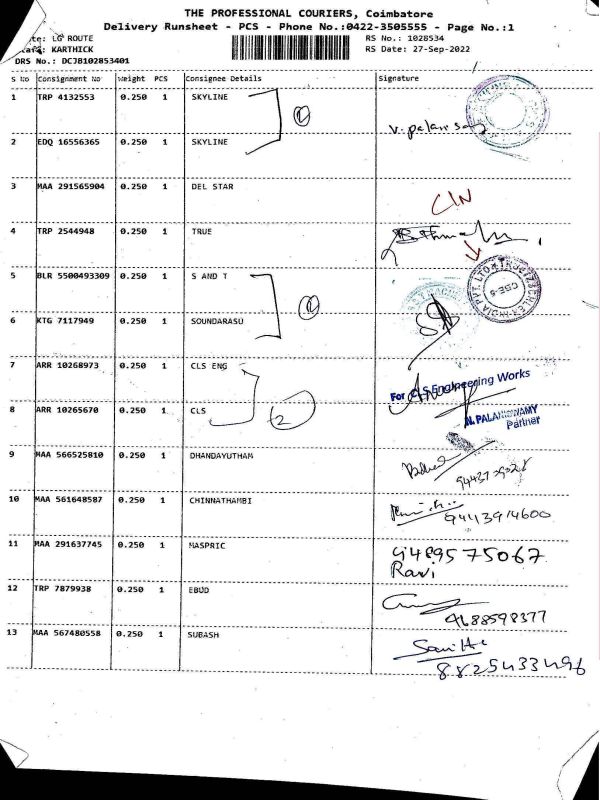 THE PROFESSIONAL COURIERS, Coimbatore
Delivery Runsheet - PCS - Phone No.:0422-3505555 - Page No.:1
te: LG ROUTE RS No.: 1028534
KARTHICK RS Date: 27-Sep-2022
DRS No.: DCJB102853401
S No Consignment No Weight PCS Consignee Details Signature
1 TRP 4132553 0.250 1 SKYLINE
2 EDQ 16556365 0.250 1 SKYLINE
3 MAA 291565904 0.250 1 DEL STAR
4 TRP 2544948 0.250 1 TRUE
5 BLR 5500493309 0.250 1 S AND T
6 KTG 7117949 0.250 1 SOUNDARASU
7 ARR 10268973 0.250 1 CLS ENG
For CLS Engineering Works
8 ARR 10265670 0.250 1 CLS 2
N. PALANISWAMY
Partner
9 MAA 566525810 0.250 1 DHANDAYUTHAM
10 MAA 561648587 0.250 1 CHINNATHAMBI
9443914600
11 MAA 291637745 0.250 1 MASPRIC
9489575067
Ravi
12 TRP 7879938 0.250 1 EBUD
13 MAA 567480558 0.250 1 SUBASH
8825433496